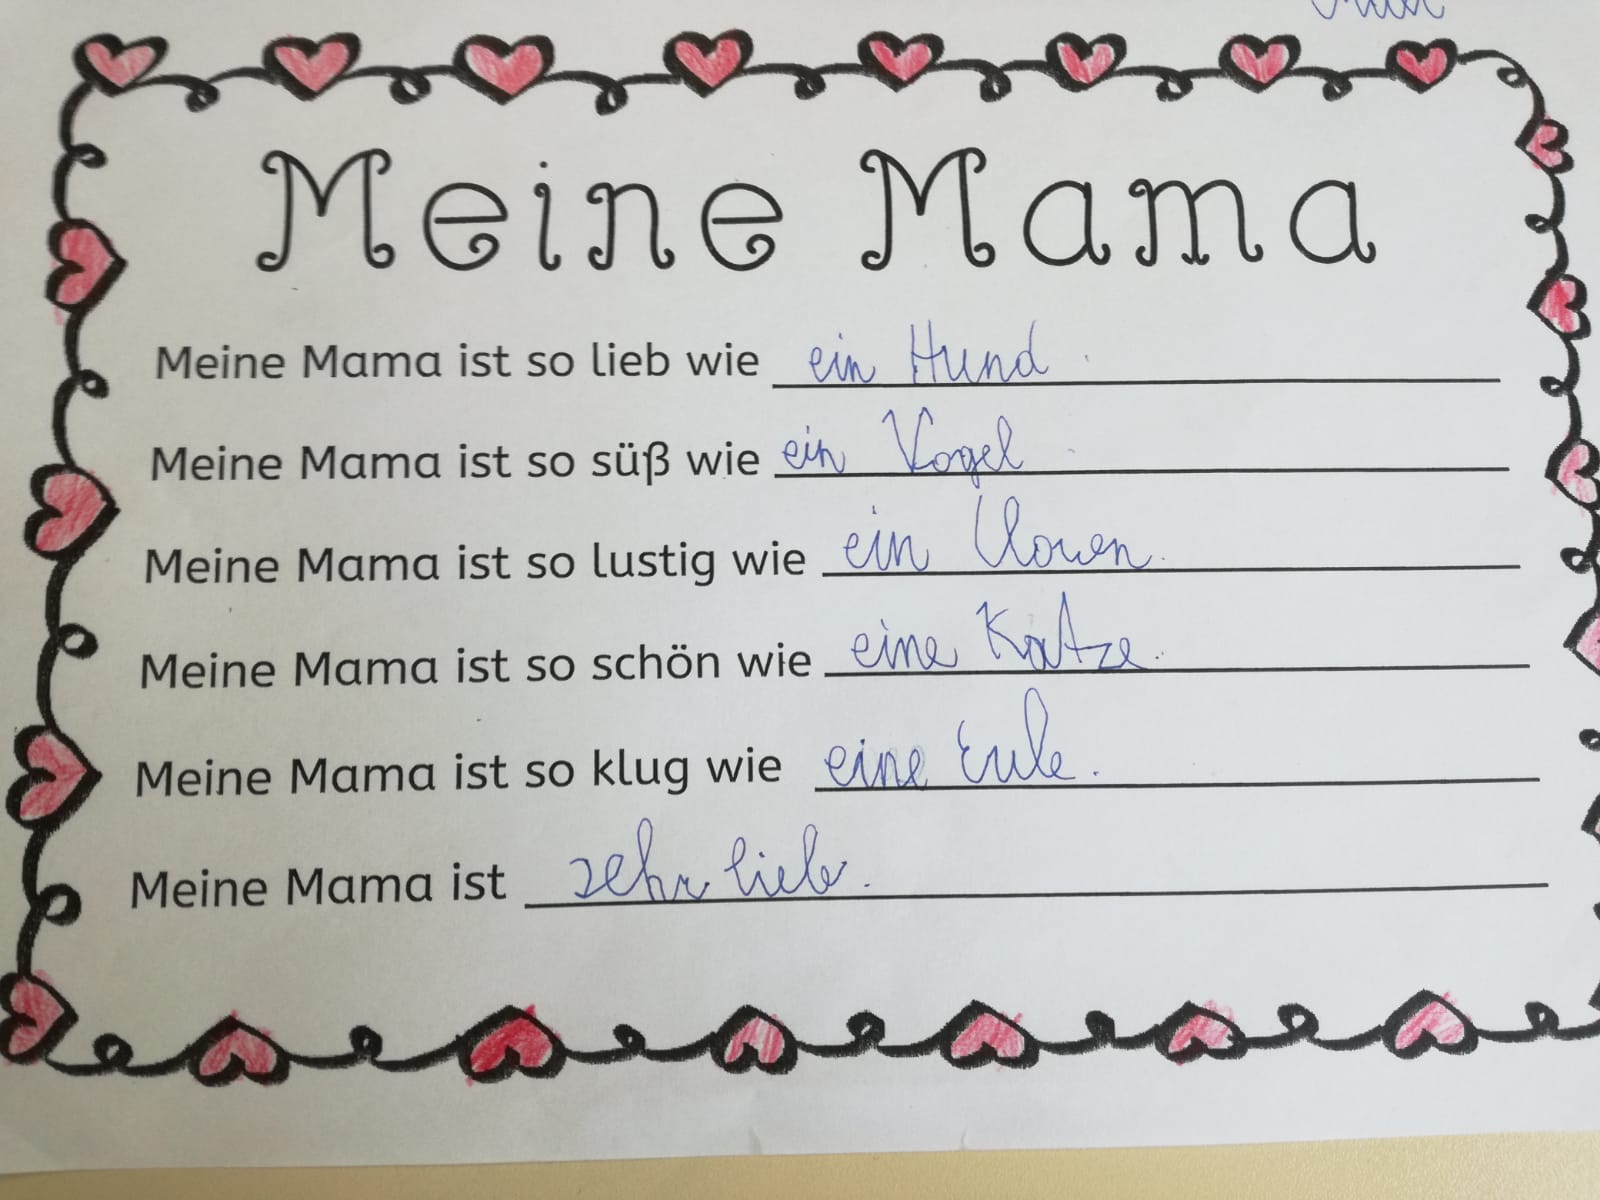 Meine Mama
Meine Mama ist so lieb wie ein Hund.
Meine Mama ist so süß wie ein Vogel.
Meine Mama ist so lustig wie ein Clowen.
Meine Mama ist so schön wie eine Katze.
Meine Mama ist so klug wie eine Eule.
Meine Mama ist sehr lieb.